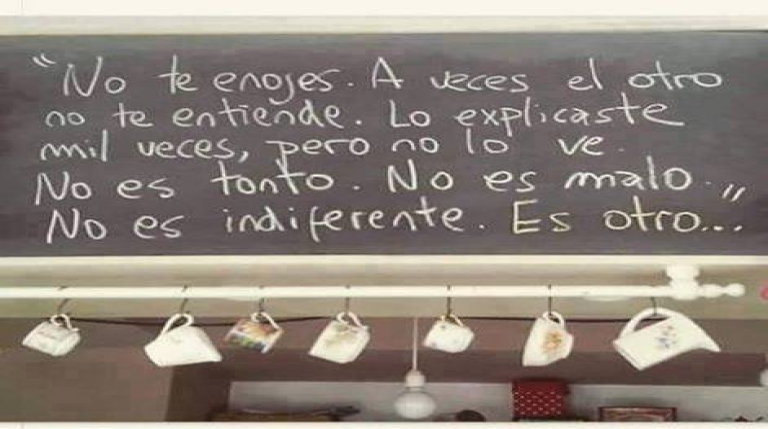 “No te enojes. A veces el otro
no te entiende. Lo explicaste
mil veces, pero no lo ve.
No es tonto. No es malo.
No es indiferente. Es otro...”